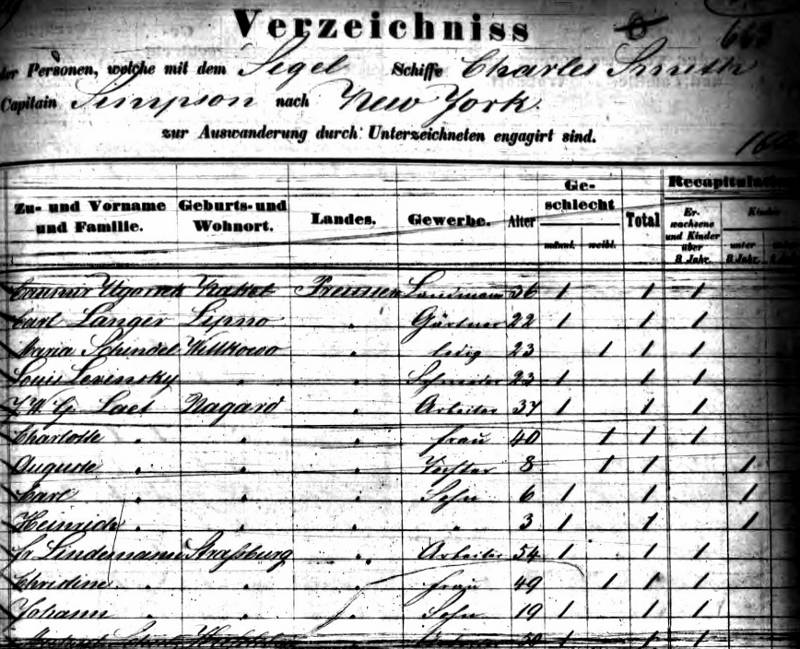 Verzeichniss
der Personen, welche mit dem Segel Schiffe Charles Smith
Capitain Simpson nach New York.
zur Auswanderung durch Unterzeichneten engagirt sind.
Zu- und Vorname und Familie. Geburts- und Wohnort. Landes. Gewerbe. Alter Geschlecht männl. weibl. Total Er-wachsene und Kinder über 8 Jahr. unter 8 Jahr.
Preussen Landmann 36 1 1 1
Carl Langer Lipno " Gärtner 22 1 1 1
Maria Schindel Wittkowo " ledig 23 1 1 1
Louis Levinsky " " Schneider 23 1 1 1
J. W. G. Laet Nagard " Arbeiter 37 1 1 1
Charlotte " " " frau 40 1 1 1
Auguste " " " Tochter 8 1 1 1
Carl " " " Sohn 6 1 1 1
Heinrich " " " " 3 1 1 1
Fr. Lindemann Straßburg " Arbeiter 54 1 1 1
Christine " " " frau 49 1 1 1
Johann " " " Sohn 19 1 1 1
50 1 1 1